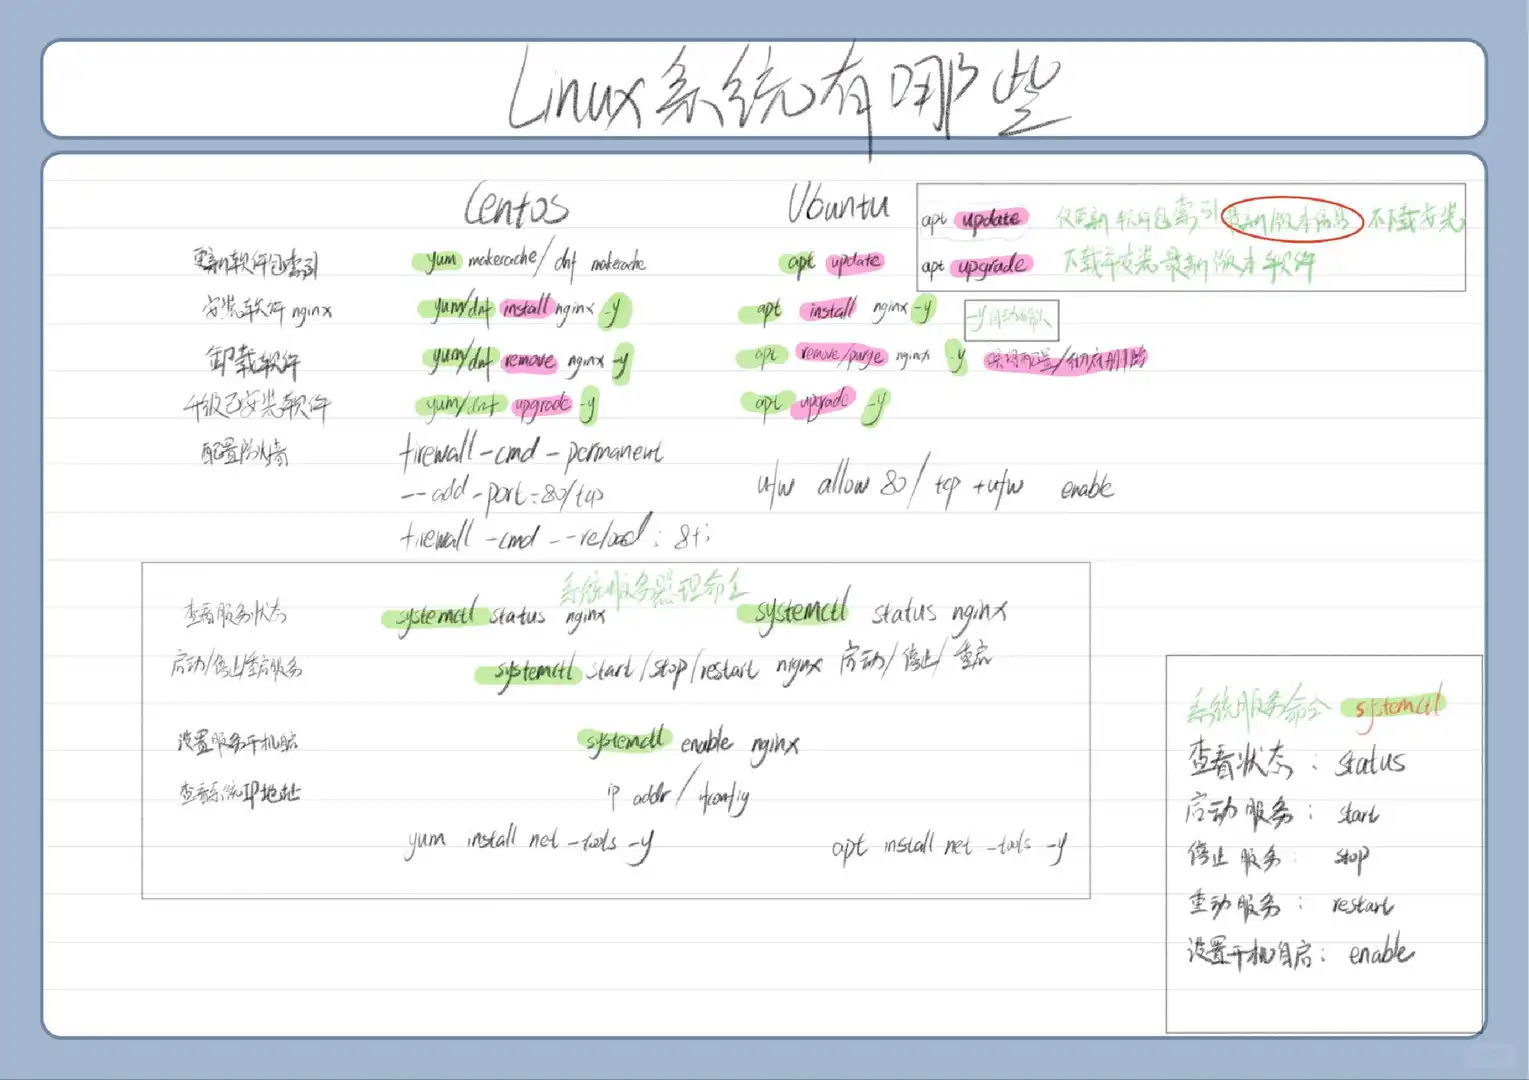 Linux系统有哪些
Centos Ubuntu
apt update 仅更新软件包索引 最新版本信息 不下载安装
apt upgrade 下载并安装最新版本软件
更新软件包索引 yum makecache/dnf makecache apt update
安装软件 nginx yum/dnf install nginx -y apt install nginx -y
-y 自动确认
卸载软件 yum/dnf remove nginx -y apt remove/purge nginx -y 保留配置/彻底删除
升级已安装软件 yum/dnf upgrade -y apt upgrade -y
配置防火墙 firewall-cmd -permanent
--add-port=80/tcp
ufw allow 80/tcp +ufw enable
firewall-cmd --reload
系统服务管理命令
查看服务状态 systemctl status nginx systemctl status nginx
启动/停止/重启服务 systemctl start/stop/restart nignx 启动/停止/重启
设置服务开机启 systemctl enable nginx
查看系统IP地址 ip addr/ifconfig
yum install net-tools -y apt install net-tools -y
系统服务命令 systemctl
查看状态: status
启动服务: start
停止服务: stop
重动服务: restart
设置开机自启: enable